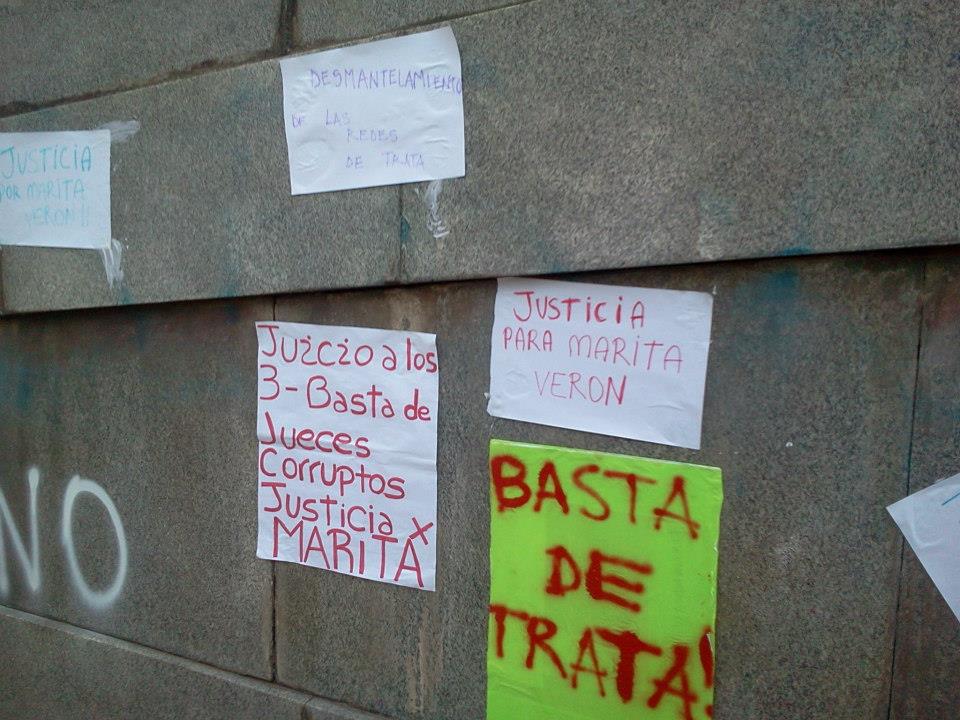 DESMANTELAMIENTO
DE LAS
REDES
DE TRATA
JUSTICIA
POR MARITA
VERON!!
JUSTICIA
PARA MARITA
VERON
Juicio a los
3-Basta de
Jueces
Corruptos
Justicia x
MARITA
BASTA
DE
TRATA!
NO